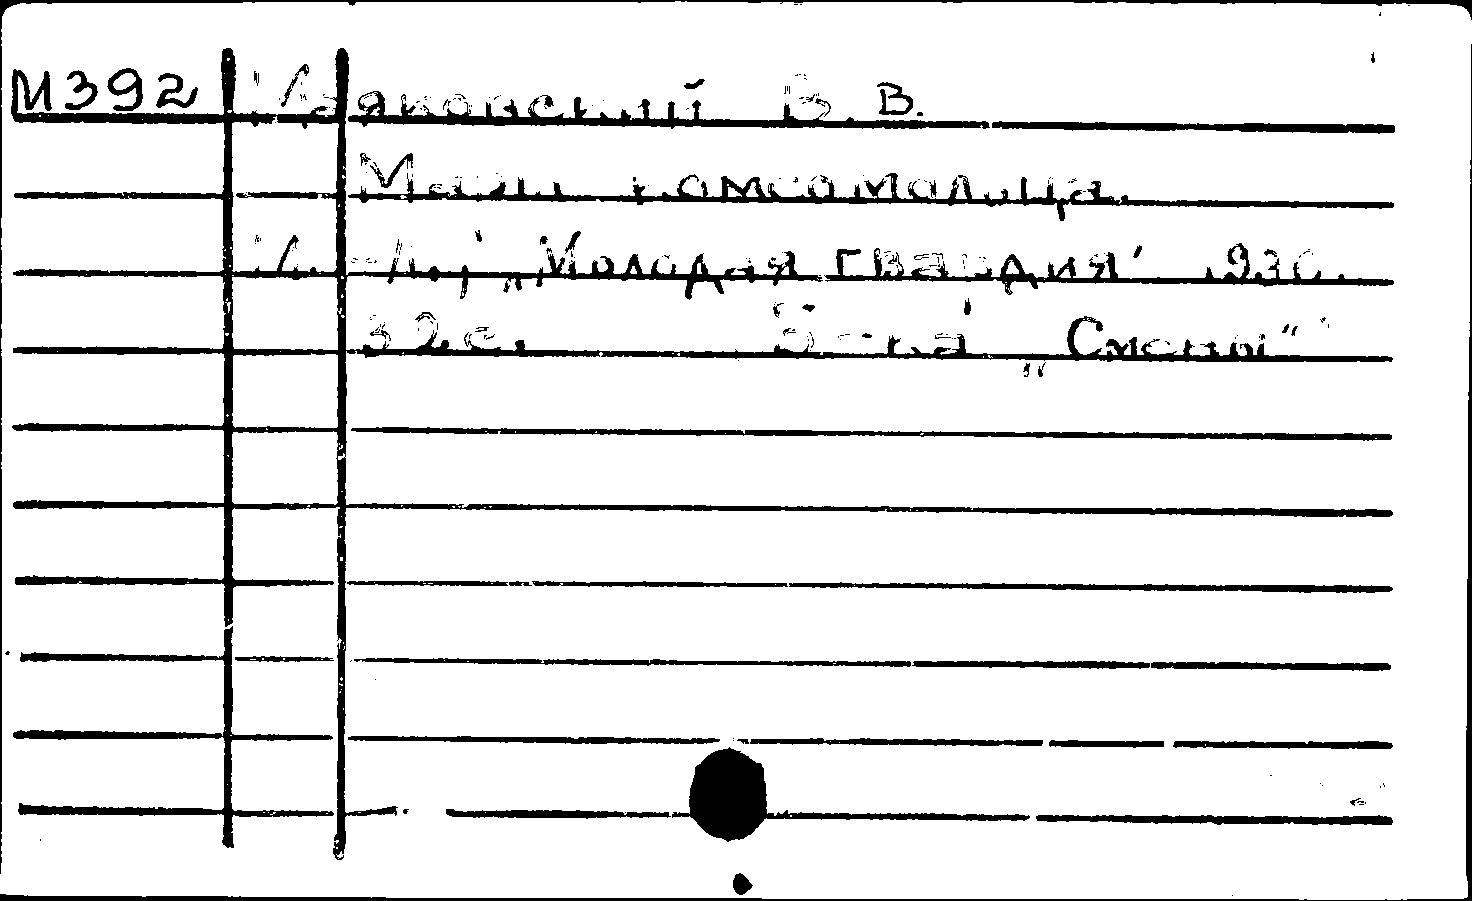 М392 Маяковский В. В.
Марш комсомольца.
М.-Л., „Молодая Гвардия" 1930.
32 с. Б-ка „Смены"